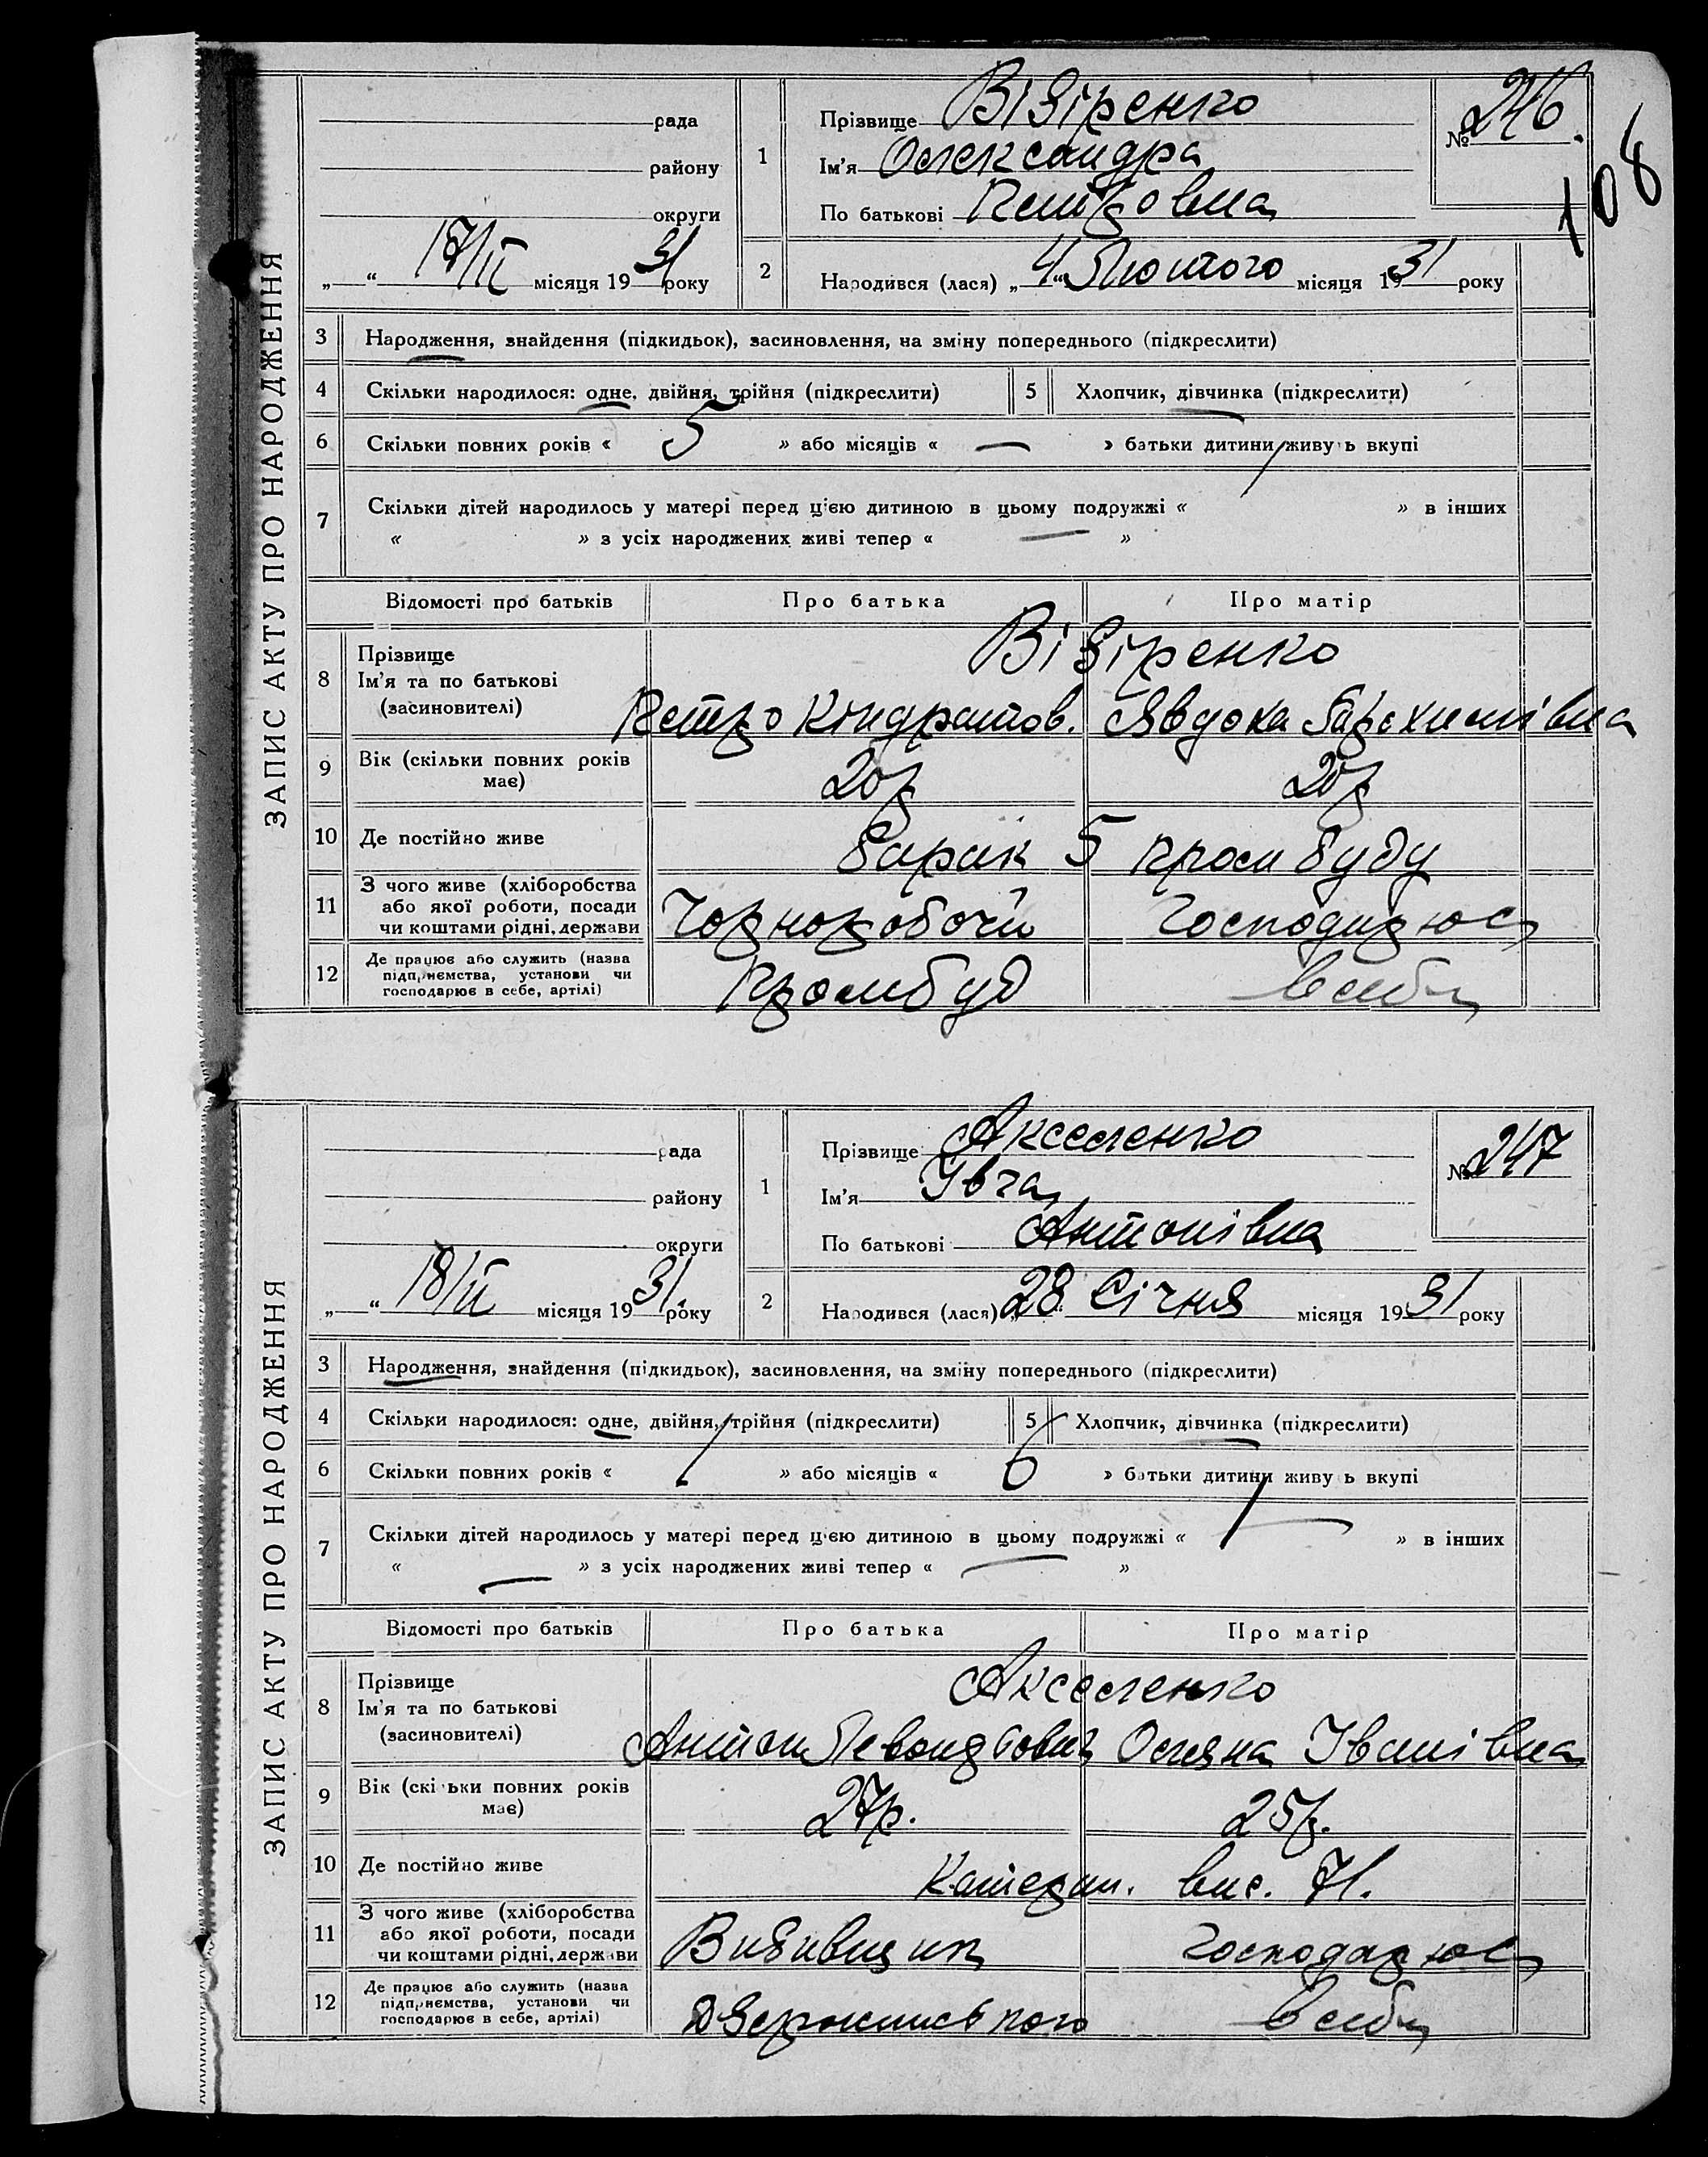 108
ЗАПИС АКТУ ПРО НАРОДЖЕННЯ
рада
району
округи
„ “ 17/II місяця 1931 року
1
Прізвище Візіренко
Ім'я Олександра
По батькові Петровна
№ 246.
2
Народився (лася) „4“ Лютого місяця 1931 року
3 Народження, знайдення (підкидьок), засиновлення, на зміну попереднього (підкреслити)
4 Скільки народилося: одне, двійня, трійня (підкреслити) 5 Хлопчик, дівчинка (підкреслити)
6 Скільки повних років « 5 » або місяців « — » батьки дитини живу ь вкупі
7 Скільки дітей народилось у матері перед цією дитиною в цьому подружжі « 1 » в інших
« » з усіх народжених живі тепер « — »
Відомості про батьків Про батька Про матір
8 Прізвище
Ім'я та по батькові
(засиновителі)
Візіренко
Петро Кіндратов. Явдоха
9 Вік (скільки повних років
має)
20р 20р
10 Де постійно живе барак 5 промбуду
11 З чого живе (хліборобства
або якої роботи, посади
чи коштами рідні, держави
Чорноробочий
12 Де працює або служить (назва
підприємства, установи чи
господарює в себе, артілі)
Промбуд в себе
ЗАПИС АКТУ ПРО НАРОДЖЕННЯ
рада
району
округи
„ “ 18/II місяця 1931. року
1
Прізвище Акселенко
Ім'я
По батькові Антонівна
№ 247
2
Народився (лася) „28“ Січня місяця 1931 року
3 Народження, знайдення (підкидьок), засиновлення, на зміну попереднього (підкреслити)
4 Скільки народилося: одне, двійня, трійня (підкреслити) 5 Хлопчик, дівчинка (підкреслити)
6 Скільки повних років « 1 » або місяців « 6 » батьки дитини живу ь вкупі
7 Скільки дітей народилось у матері перед цією дитиною в цьому подружжі « 1 — » в інших
« — » з усіх народжених живі тепер « — »
Відомості про батьків Про батька Про матір
8 Прізвище
Ім'я та по батькові
(засиновителі)
Акселенко
Антон Оляна Іванівна
9 Вік (скі ьки повних років
має)
27р. 25р.
10 Де постійно живе Катерин. вис. 71.
11 З чого живе (хліборобства
або якої роботи, посади
чи коштами рідні, держ ви
Вибивщик Господарює
12 Де працює або служить (назва
підприємства, установи чи
господарює в себе, артілі)
Дзержинського в себе